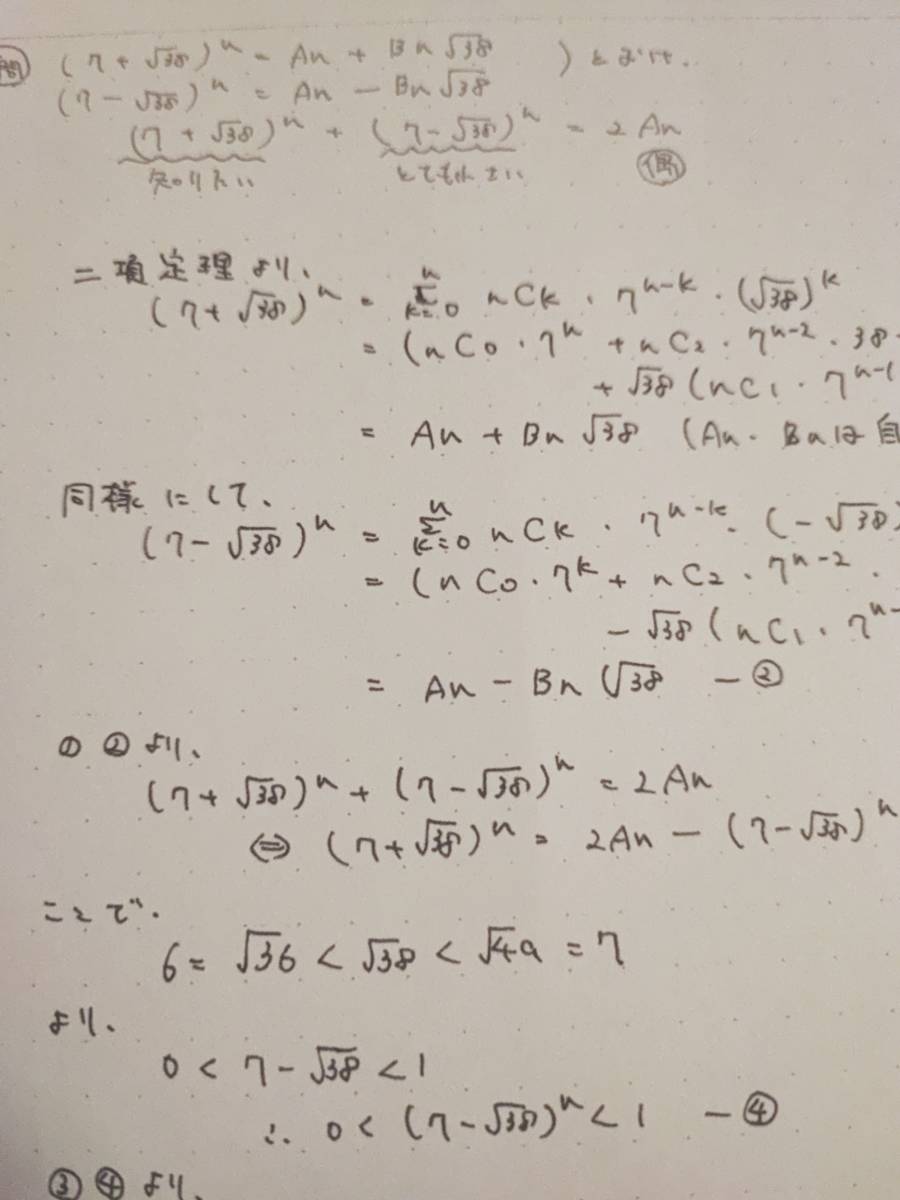 (7+√38)^n = An + Bn√38 ) とおけ.
(7-√38)^n = An - Bn√38
(7+√38)^n + (7-√38)^n = 2An
知りたい とても小さい 偶
二項定理より、
(7+√38)^n = Σ_{k=0}^{n} nCk・7^{n-k}・(√38)^k
= (nC0・7^n + nC2・7^{n-2}・38
+ √38 (nC1・7^{n-1
= An + Bn√38 (An・Bnは自
同様にして、
(7-√38)^n = Σ_{k=0}^{n} nCk・7^{n-k}・(-√38)
= (nC0・7^k + nC2・7^{n-2}・
- √38 (nC1・7^{n-
= An - Bn√38 -②
① ②より、
(7+√38)^n + (7-√38)^n = 2An
⇔ (7+√38)^n = 2An - (7-√38)^n
ここで.
6 = √36 < √38 < √49 = 7
より、
0 < 7-√38 < 1
∴ 0 < (7-√38)^n < 1 -④
③ ④より、